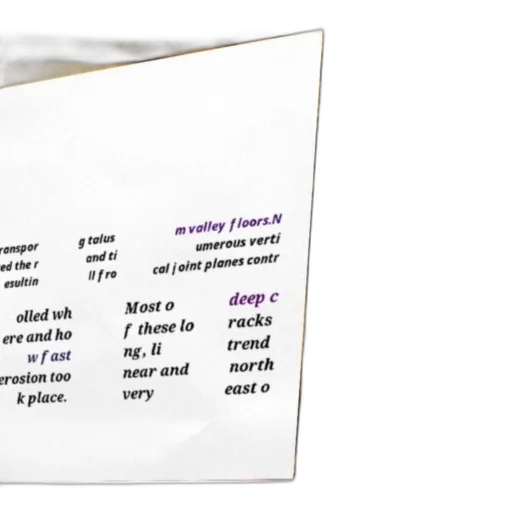 ranspor
ed the r
esultin
g talus
and ti
ll fro
m valley floors.N
umerous verti
cal joint planes contr
olled wh
ere and ho
w fast
erosion too
k place.
Most o
f these lo
ng, li
near and
very
deep c
racks
trend
north
east o